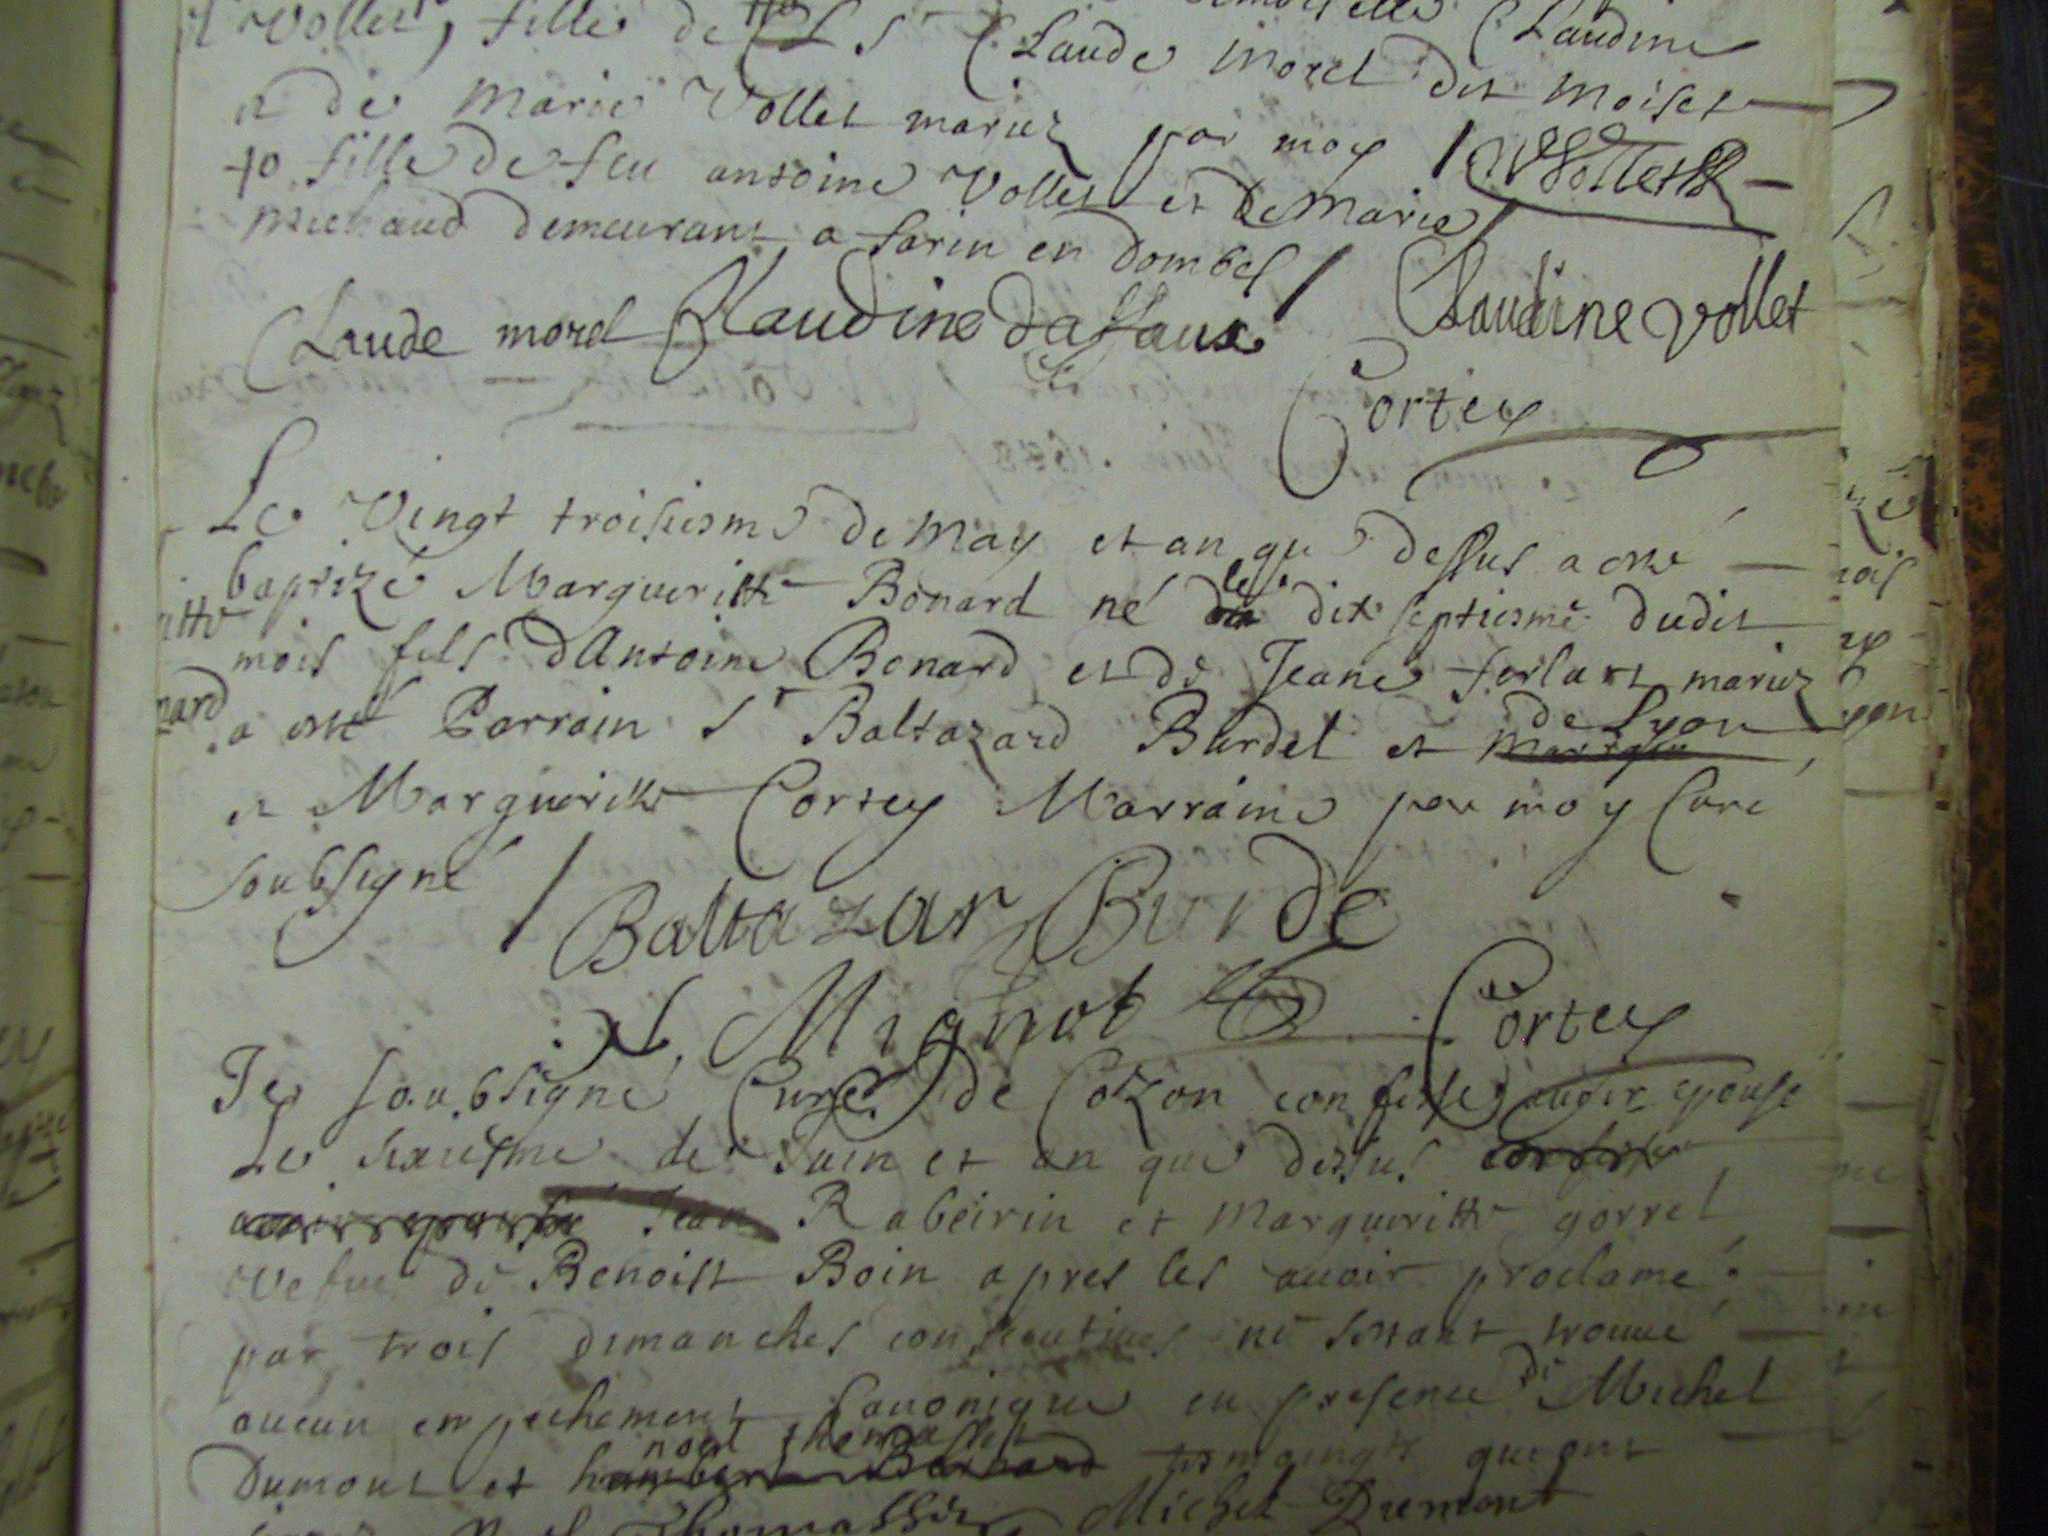 Vollet, fille de Sr Claude Morel dit Moiset
demoiselle Claudine
et de Marie Vollet mariez par moy
+o fille de feu antoine Vollet et de Marie
Michaud demeurant a farin en Dombes /
Claude morel Claudine dassaux Claudine vollet
Cortey
Le Vingt troisiesme de May et an que dessus a esté
baptizé Margueritte Bonard né le dix septiesme dudit
mois fils d'Antoine Bonard et de Jeane forlart mariez
a esté Parrain Sr Baltazard Burdel et de Lyon
et Margueritte Cortey Marraine par moy Curé
soubsigné /
Baltazar Burde
Mignot Cortey
Je soubsigné Curé de Cozon confesse avoir epousé
Le sixiesme de Juin et an que dessus
Jean Rabeirin et Margueritte gorrel
vefue de Benoist Boin apres les auoir proclamé
par trois dimanches consecutiues ne sestant trouué
aucun empechement Canonique en presence de Michel
noel thomassin
Dumont et humbert Bernard tesmoingts qui ont
Noel Thomassin Michel Dumont